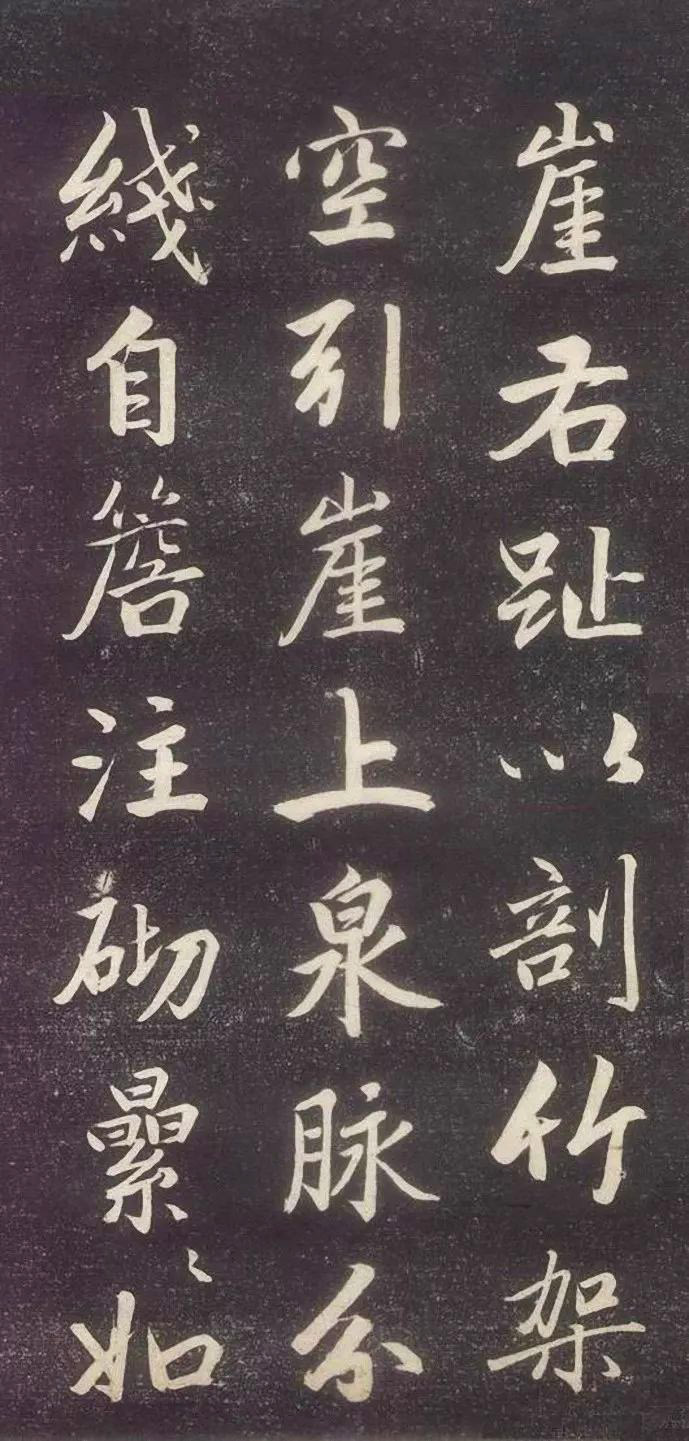 崖右趾以剖竹架
空引崖上泉脉分
綫自簷注砌纍〻如